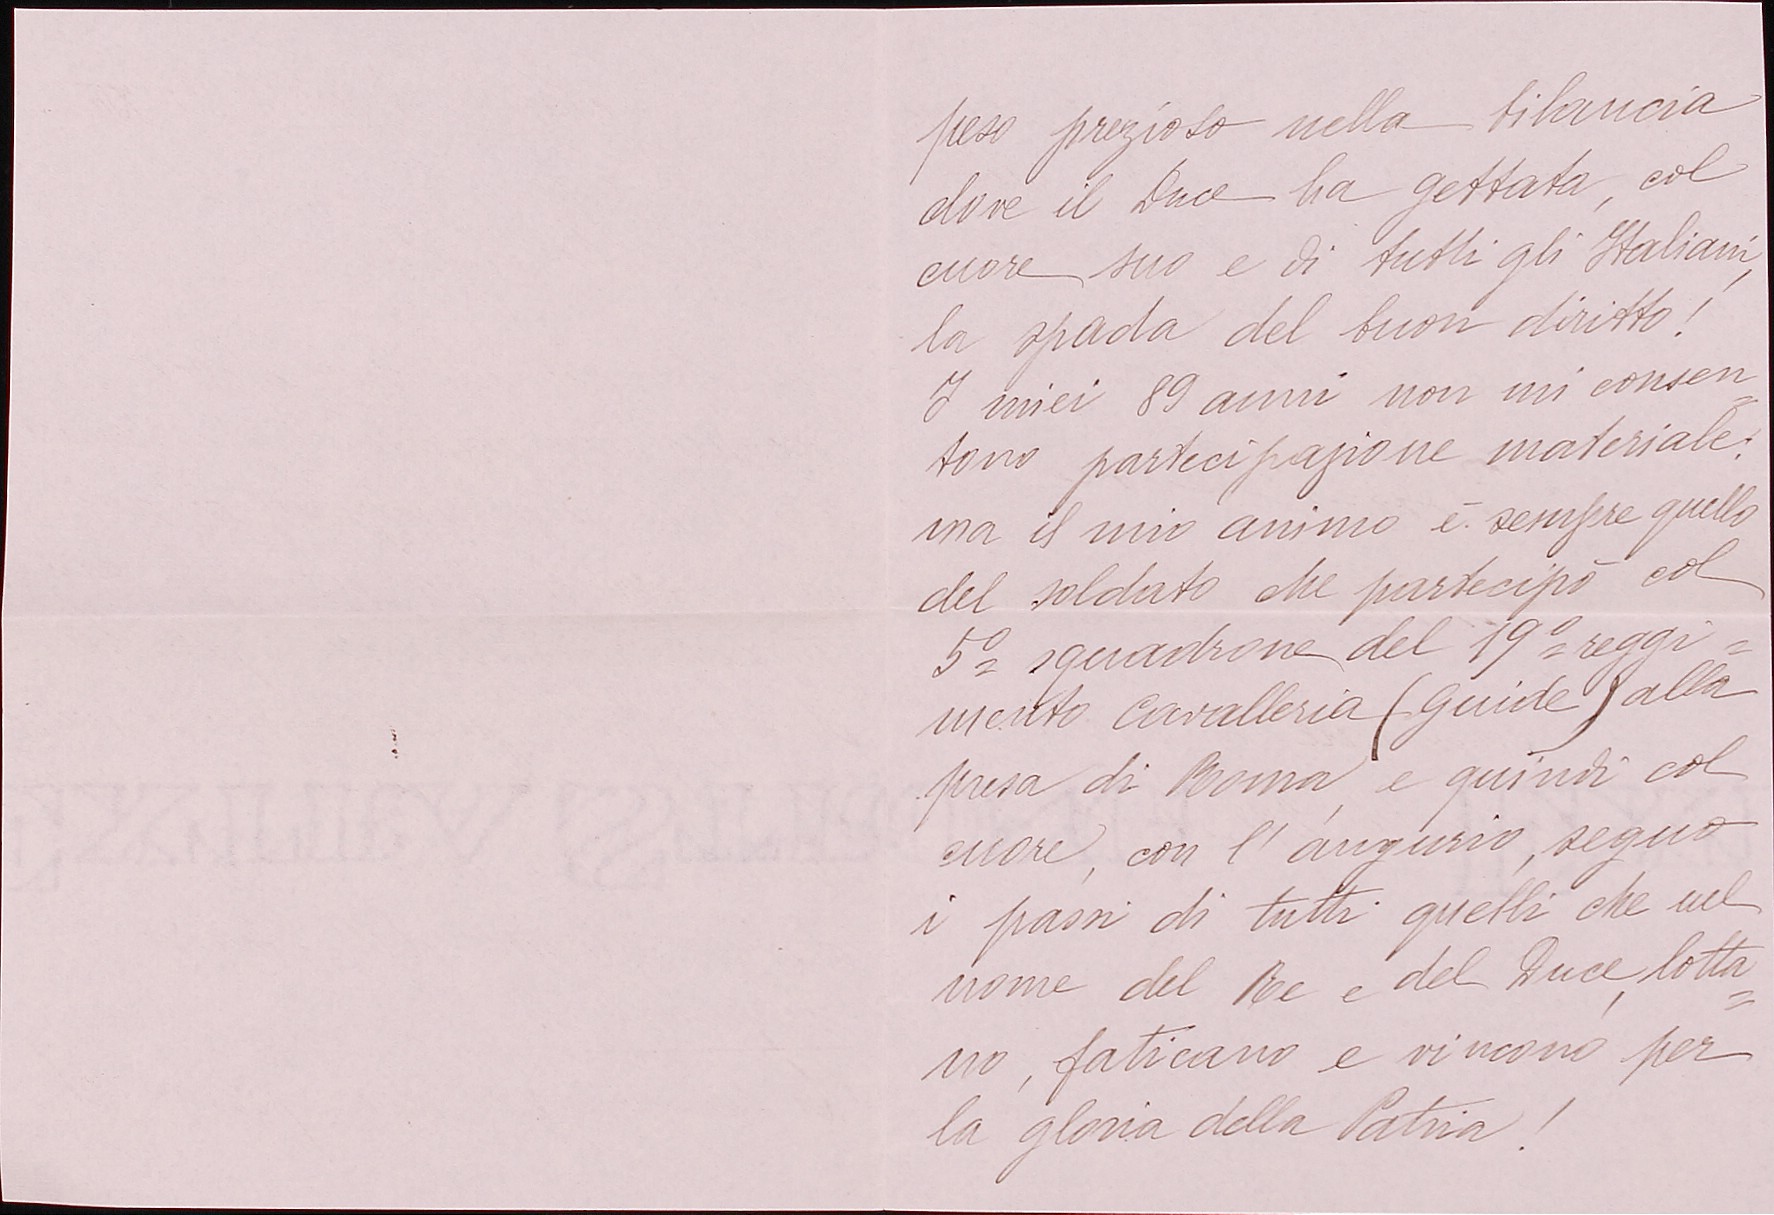 peso prezioso nella bilancia
dove il Duce ha gettata, col
cuore suo e di tutti gli Italiani,
la spada del buon diritto!
I miei 89 anni non mi consen=
tono partecipazione materiale:
ma il mio animo è sempre quello
del soldato che partecipò col
5º squadrone del 19º reggi=
mento Cavalleria (Guide) alla
presa di Roma, e quindi col
cuore, con l'augurio, seguo
i passi di tutti quelli che nel
nome del Re e del Duce, lotta=
no, faticano e vincono per
la gloria della Patria!